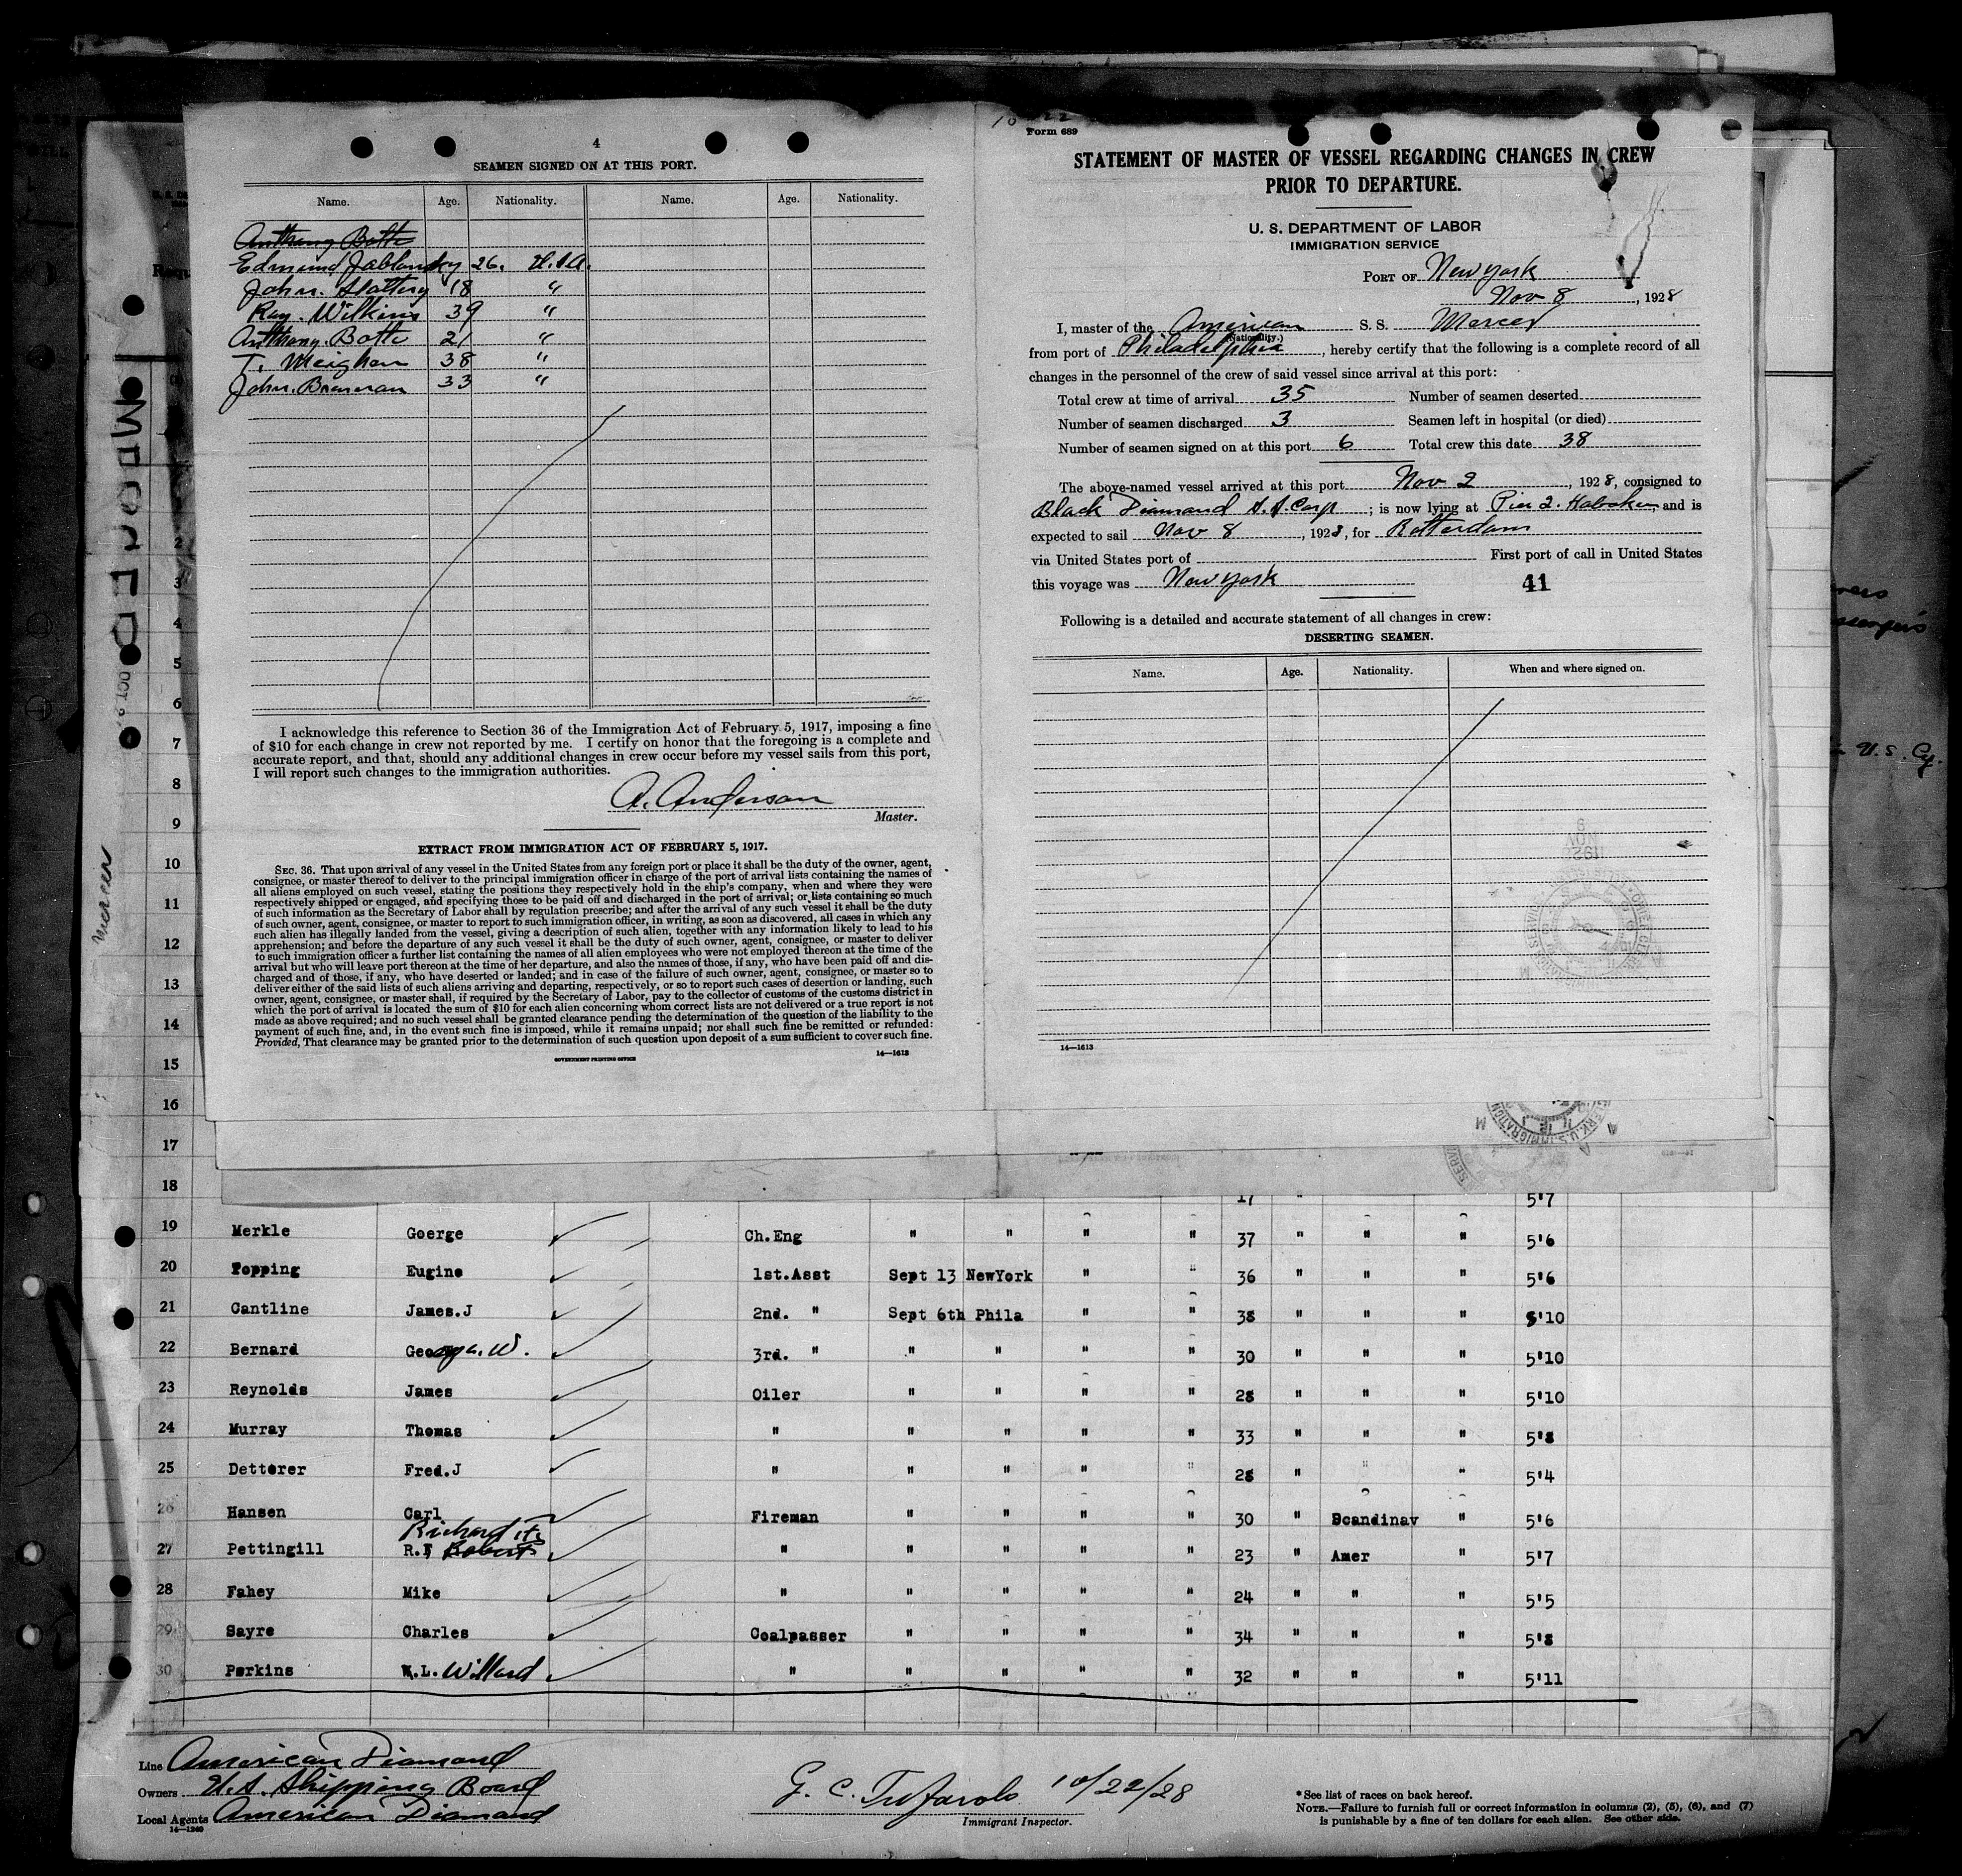 4
SEAMEN SIGNED ON AT THIS PORT.
Name. Age. Nationality. Name. Age. Nationality.
Anthony Botte
Edmund Jablonsky 26. U.S.A.
John. Slattery 18 "
Ray. Wilkins 39 "
Anthony. Botte 21 "
T. Meighan 38 "
John. Brennan 33 "
I acknowledge this reference to Section 36 of the Immigration Act of February 5, 1917, imposing a fine
of $10 for each change in crew not reported by me. I certify on honor that the foregoing is a complete and
accurate report, and that, should any additional changes in crew occur before my vessel sails from this port,
I will report such changes to the immigration authorities.
A. Anderson
Master.
EXTRACT FROM IMMIGRATION ACT OF FEBRUARY 5, 1917.
SEC. 36. That upon arrival of any vessel in the United States from any foreign port or place it shall be the duty of the owner, agent,
consignee, or master thereof to deliver to the principal immigration officer in charge of the port of arrival lists containing the names of
all aliens employed on such vessel, stating the positions they respectively hold in the ship's company, when and where they were
respectively shipped or engaged, and specifying those to be paid off and discharged in the port of arrival; or lists containing so much
of such information as the Secretary of Labor shall by regulation prescribe; and after the arrival of any such vessel it shall be the duty
of such owner, agent, consignee, or master to report to such immigration officer, in writing, as soon as discovered, all cases in which any
such alien has illegally landed from the vessel, giving a description of such alien, together with any information likely to lead to his
apprehension; and before the departure of any such vessel it shall be the duty of such owner, agent, consignee, or master to deliver
to such immigration officer a further list containing the names of all alien employees who were not employed thereon at the time of the
arrival but who will leave port thereon at the time of her departure, and also the names of those, if any, who have been paid off and dis-
charged and of those, if any, who have deserted or landed; and in case of the failure of such owner, agent, consignee, or master so to
deliver either of the said lists of such aliens arriving and departing, respectively, or so to report such cases of desertion or landing, such
owner, agent, consignee, or master shall, if required by the Secretary of Labor, pay to the collector of customs of the customs district in
which the port of arrival is located the sum of $10 for each alien concerning whom correct lists are not delivered or a true report is not
made as above required; and no such vessel shall be granted clearance pending the determination of the question of the liability to the
payment of such fine, and, in the event such fine is imposed, while it remains unpaid; nor shall such fine be remitted or refunded:
Provided, That clearance may be granted prior to the determination of such question upon deposit of a sum sufficient to cover such fine.
GOVERNMENT PRINTING OFFICE 14—1613
Form 689
STATEMENT OF MASTER OF VESSEL REGARDING CHANGES IN CREW
PRIOR TO DEPARTURE.
U. S. DEPARTMENT OF LABOR
IMMIGRATION SERVICE
PORT OF New York
Nov 8, 1928
I, master of the American S. S. Mercer
(Nationality.)
from port of Philadelphia, hereby certify that the following is a complete record of all
changes in the personnel of the crew of said vessel since arrival at this port:
Total crew at time of arrival 35 Number of seamen deserted
Number of seamen discharged 3 Seamen left in hospital (or died)
Number of seamen signed on at this port 6 Total crew this date 38
The above-named vessel arrived at this port Nov 2, 1928, consigned to
Black Diamond S.S. Corp; is now lying at Pier 2. Hoboken, and is
expected to sail Nov 8, 1928, for Rotterdam
via United States port of First port of call in United States
this voyage was New York 41
Following is a detailed and accurate statement of all changes in crew:
DESERTING SEAMEN.
Name. Age. Nationality. When and where signed on.
14—1613
2
3
4
5
6
7
8
9
10
11
12
13
14
15
16
17
18 17 " 5'7
19 Merkle Goerge Ch.Eng " " " " 37 " " " 5'6
20 Topping Eugine 1st.Asst Sept 13 NewYork " " 36 " " " 5'6
21 Cantline James.J 2nd. " Sept 6th Phila " " 38 " " " 5'10
22 Bernard George. W. 3rd. " " " " " 30 " " " 5'10
23 Reynolds James Oiler " " " " 28 " " " 5'10
24 Murray Thomas " " " " " 33 " " " 5'8
25 Detterer Fred.J " " " " " 28 " " " 5'4
26 Hansen Carl Fireman " " " " 30 " Scandinav " 5'6
Richard H.
27 Pettingill R.F Robert " " " " " 23 " Amer " 5'7
28 Fahey Mike " " " " " 24 " " " 5'5
29 Sayre Charles Coalpasser " " " " 34 " " " 5'8
30 Perkins W.L. Willard " " " " " 32 " " " 5'11
Line American Diamond
Owners U.S. Shipping Board
Local Agents American Diamond
14—1240
10/22/28
Immigrant Inspector.
*See list of races on back hereof.
NOTE.—Failure to furnish full or correct information in columns (2), (5), (6), and (7)
is punishable by a fine of ten dollars for each alien. See other side.
Mercer
U.S. Cy.